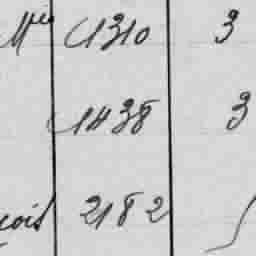 Mie 1310 3
1438 3
cois 2182